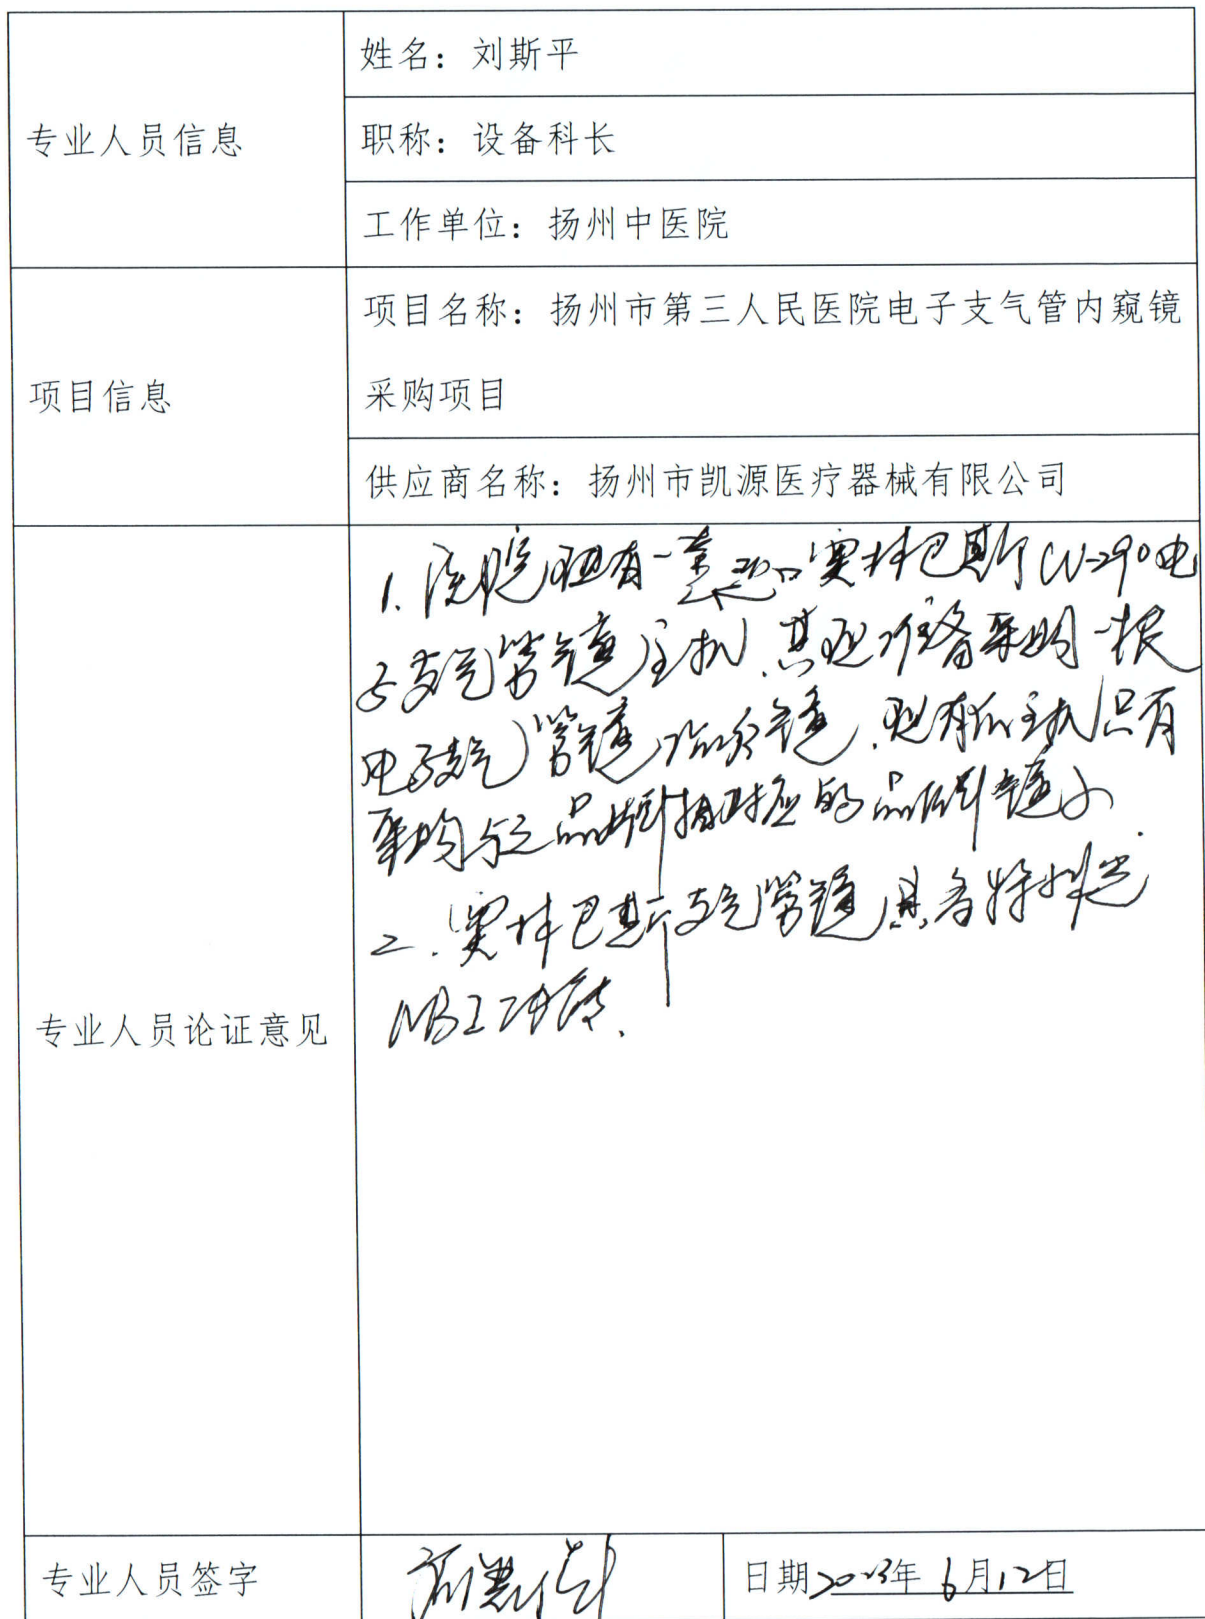 专业人员信息
姓名：刘斯平
职称：设备科长
工作单位：扬州中医院
项目信息
项目名称：扬州市第三人民医院电子支气管内窥镜
采购项目
供应商名称：扬州市凯源医疗器械有限公司
专业人员论证意见
1. 医院现有一套进口奥林巴斯CV-290电
子支气管镜主机，其现准备采购一根
电子支气管镜，现有的主机只有
采购与之品牌相对应的品牌镜子
2. 奥林巴斯支气管镜具备特殊光
NBI
专业人员签字
日期2023年6月12日